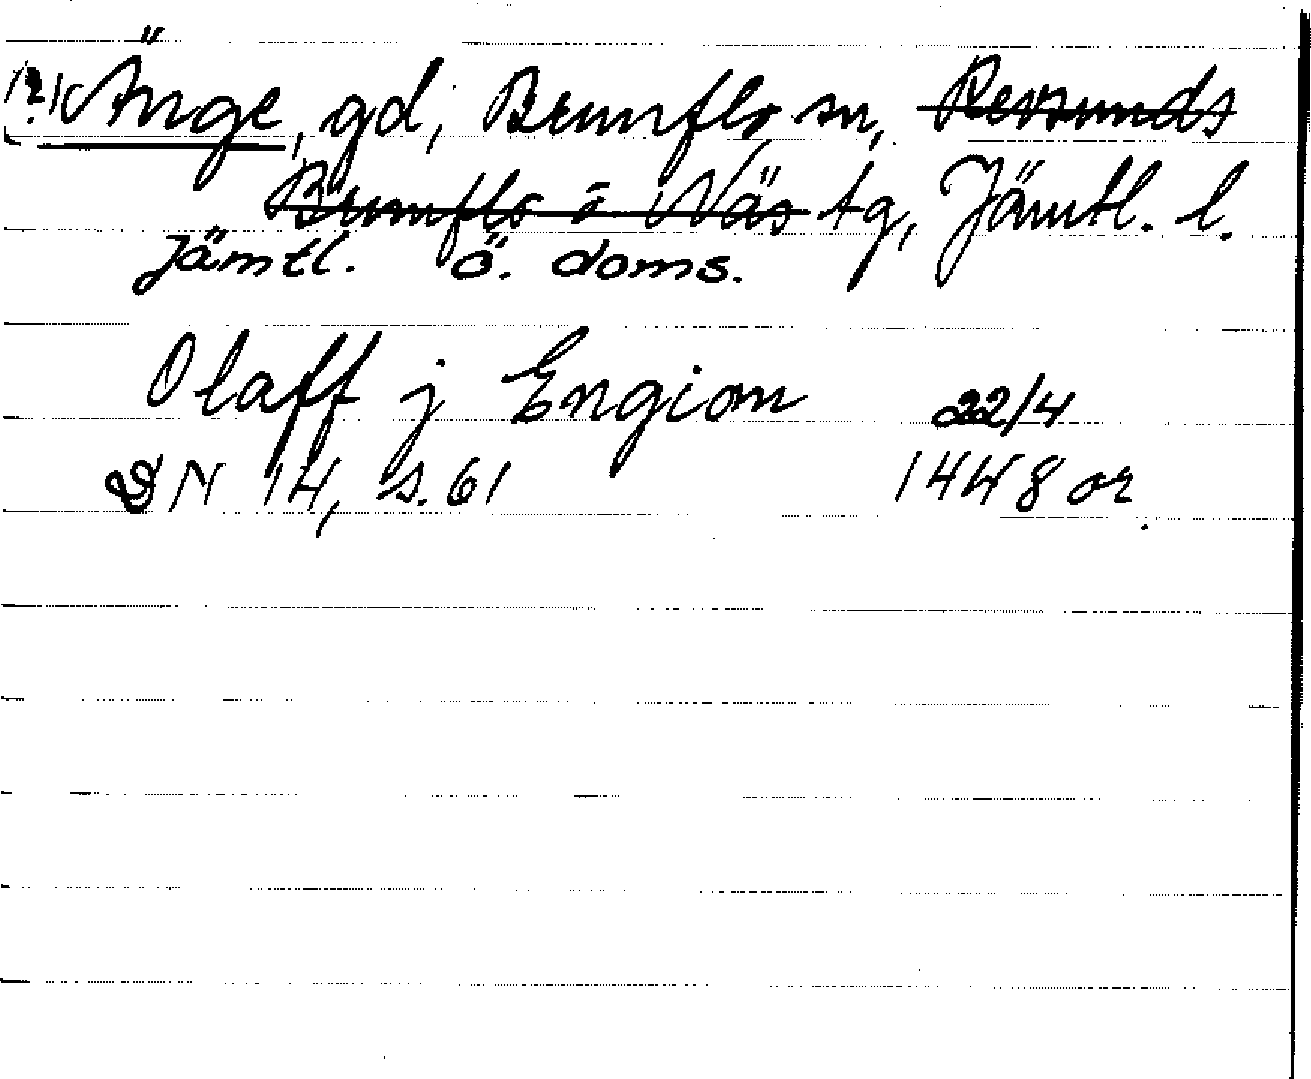 (?) Änge, gd, Brunflo sn, Revsunds
Brunflo o Näs tg, Jämtl. l.
Jämtl. ö. doms.
Olaff j Engiom 22/4
DN 14, s. 61 1448 or.